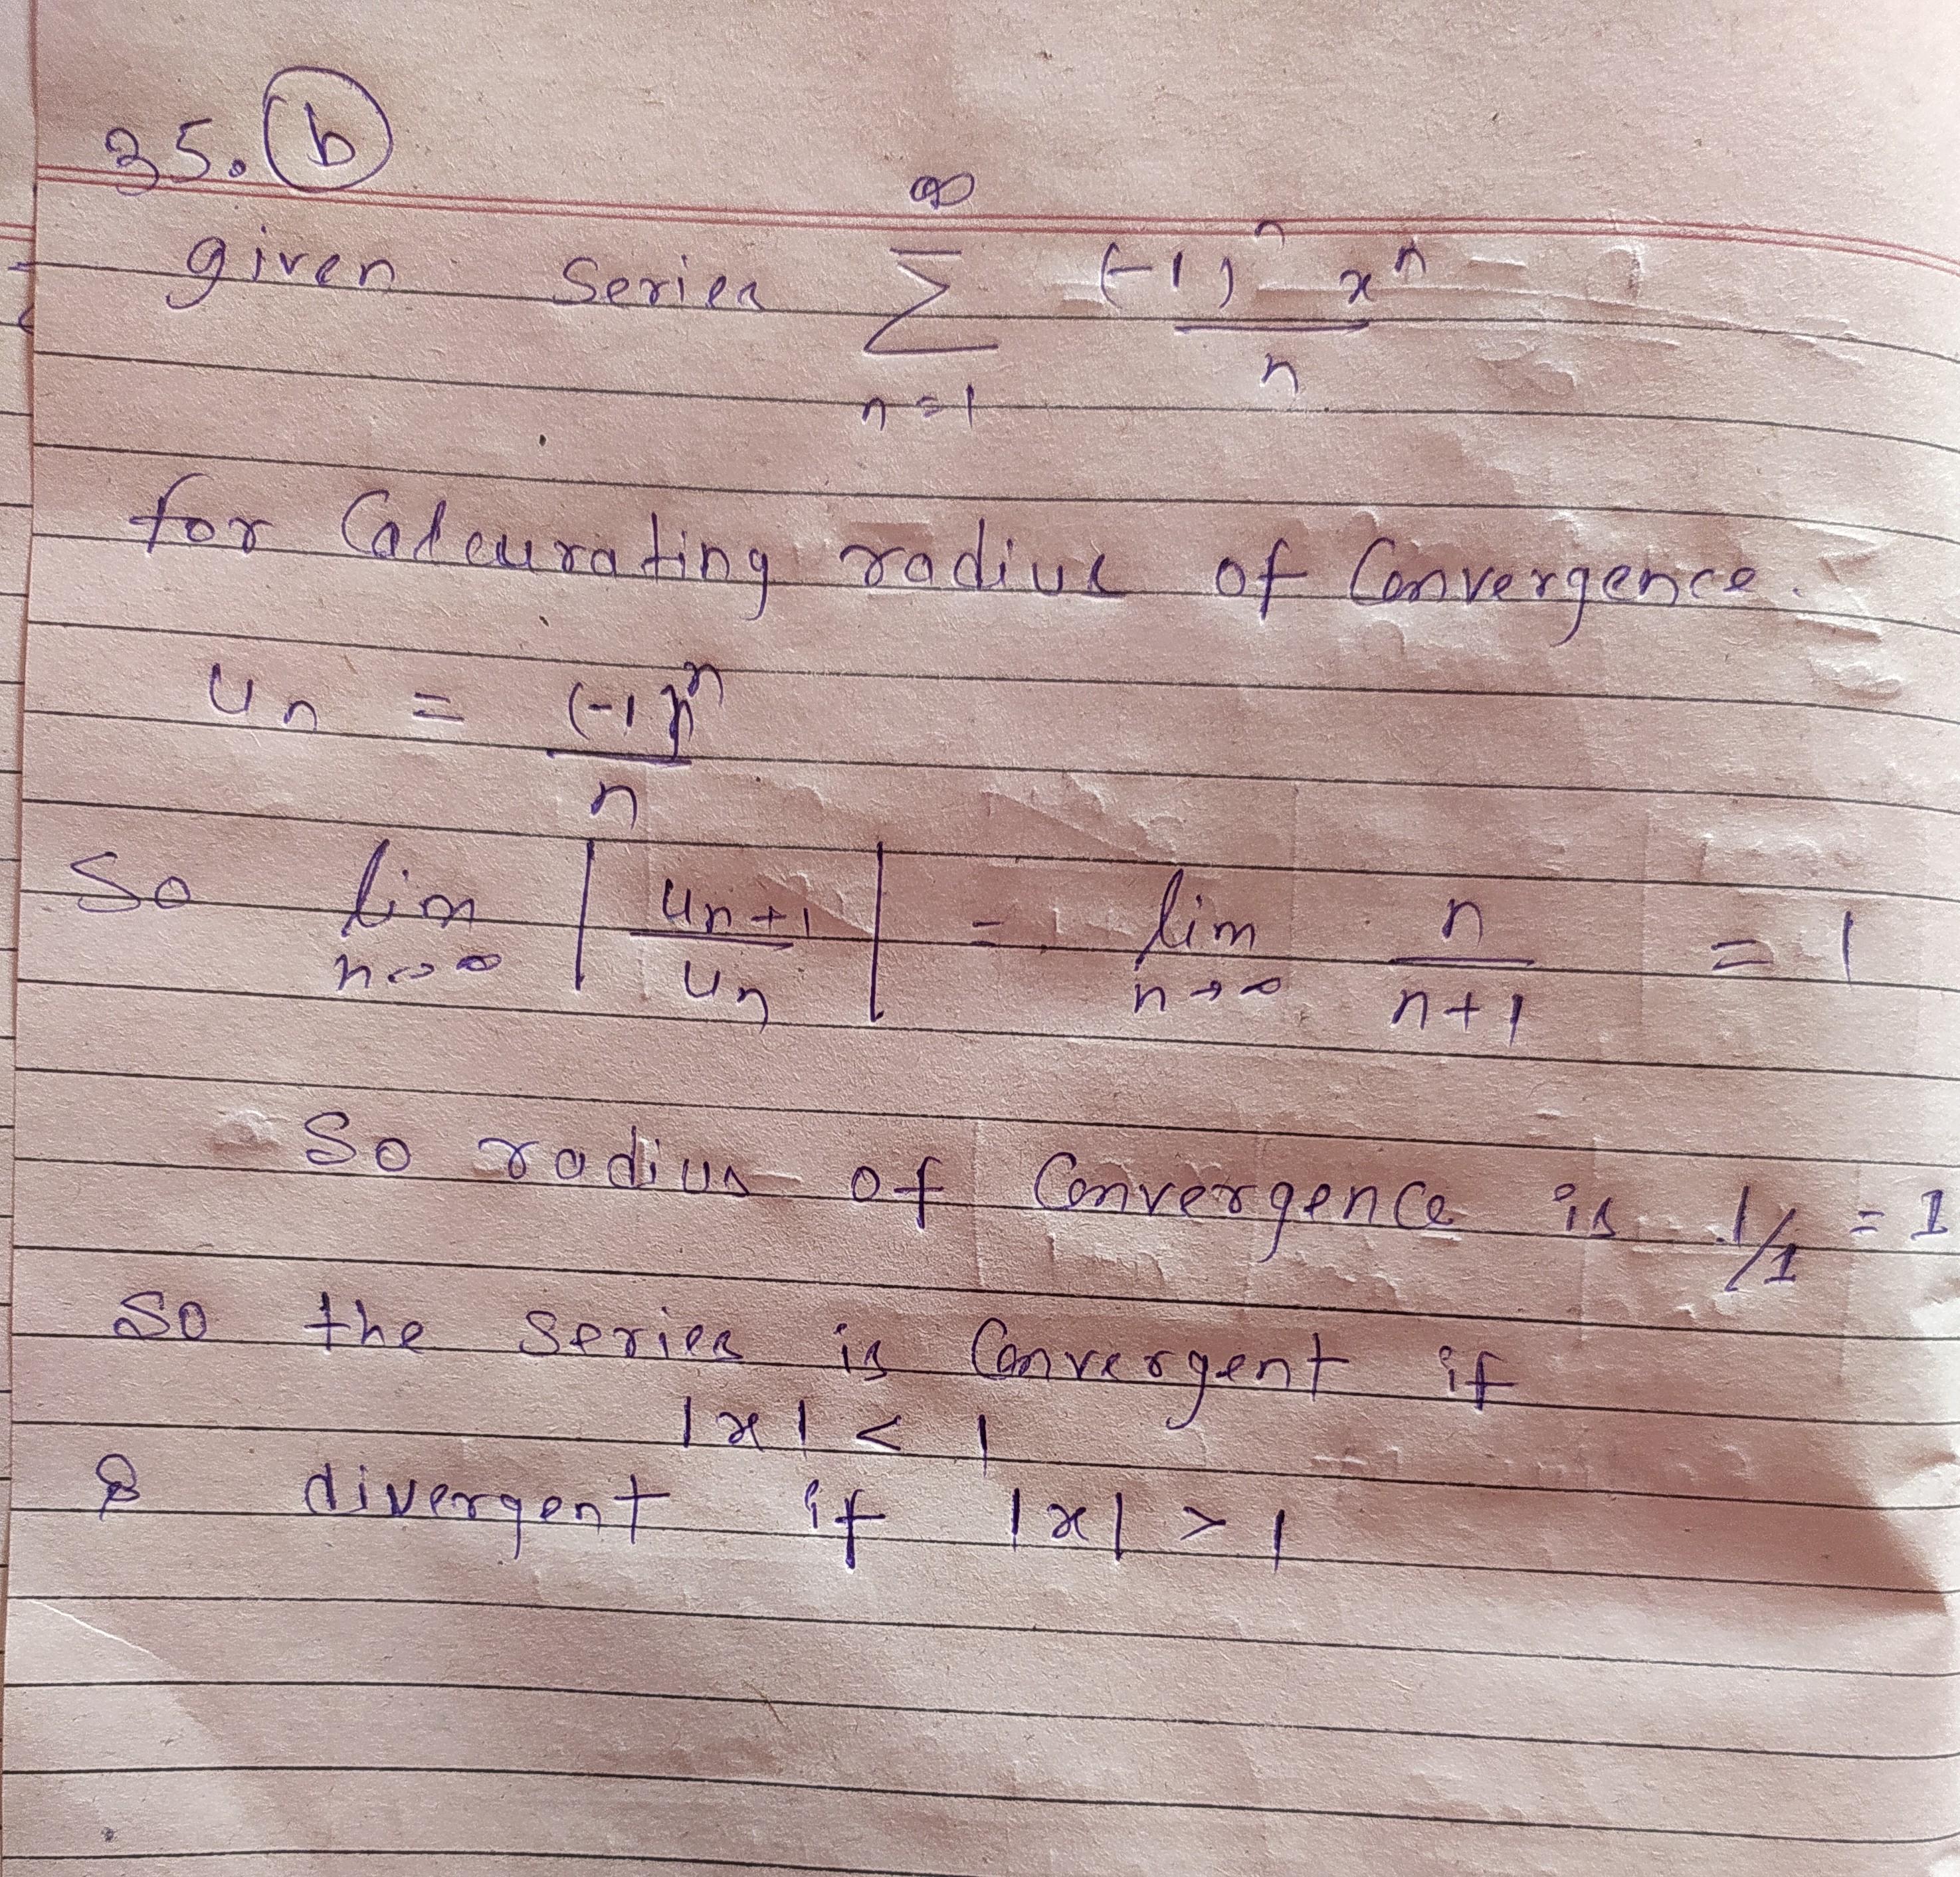 35. (b)
given series ∑_{n=1}^{∞} \frac{(-1)^n x^n}{n}
for Calcurating radius of Convergence.
u_n = \frac{(-1)^n}{n}
So lim_{n→∞} | \frac{u_{n+1}}{u_n} | = lim_{n→∞} \frac{n}{n+1} = 1
So radius of Convergence is 1/1 = 1
So the series is Convergent if
|x| < 1
& divergent if |x| > 1